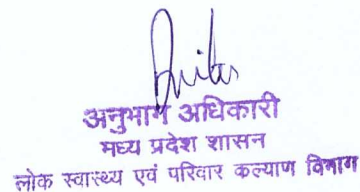 अनुभाग अधिकारी
मध्य प्रदेश शासन
लोक स्वास्थ्य एवं परिवार कल्याण विभाग